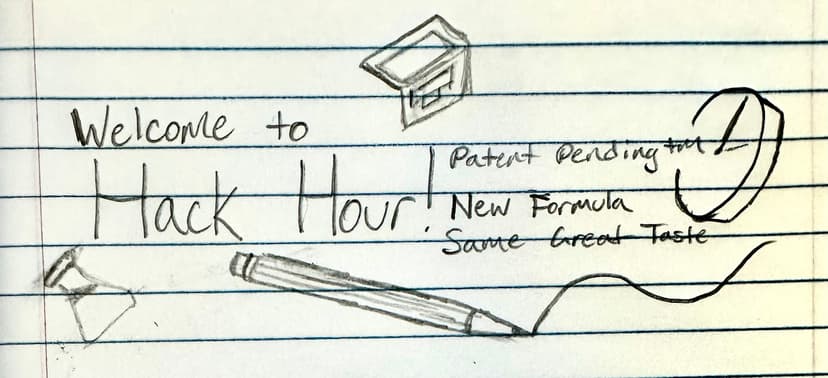 Welcome to
Hack Hour!
Patent Pending tm
New Formula
Same Great Taste